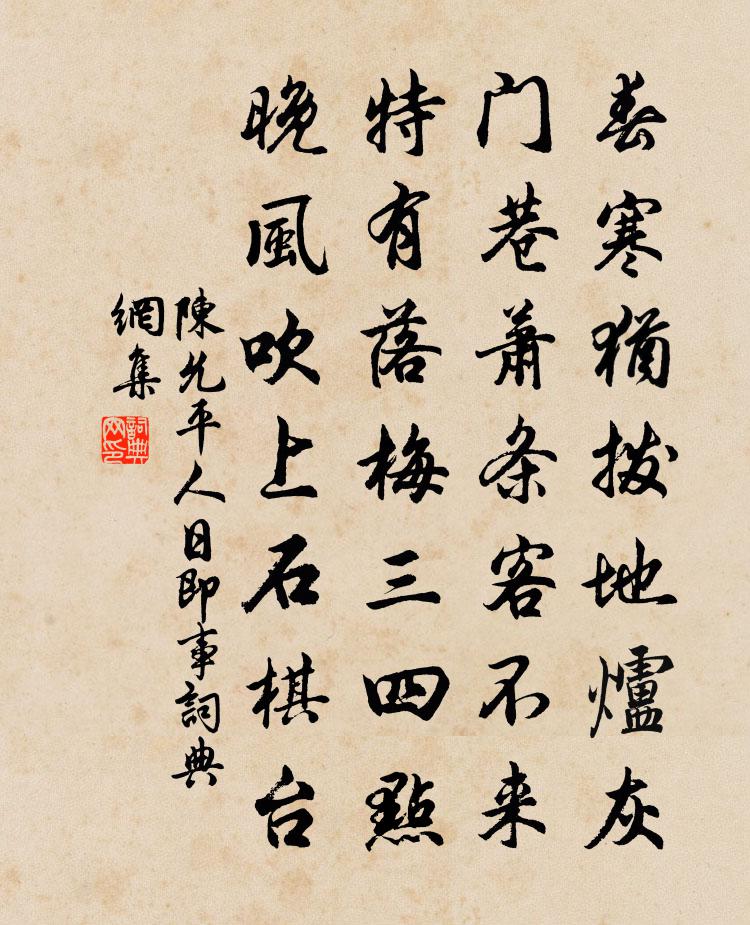 春寒猶撥地爐灰
門巷蕭条客不来
特有落梅三四點
晚風吹上石棋台
陳允平人日即事詞典
網集
詞典
网印